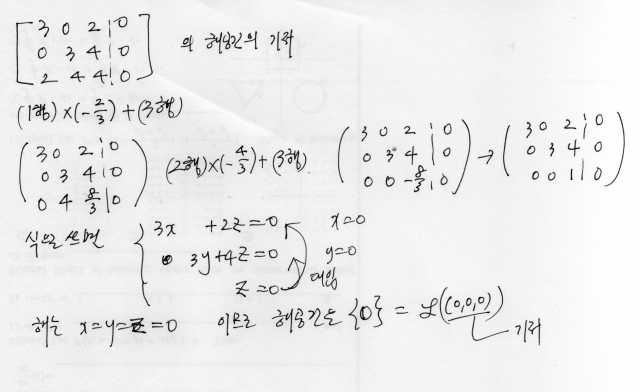 [3 0 2 | 0
0 3 4 | 0
2 4 4 | 0] 의 해공간의 기저
(1행)×(-2/3)+(3행)
(3 0 2 | 0
0 3 4 | 0
0 4 8/3 | 0) (2행)×(-4/3)+(3행) (3 0 2 | 0
0 3 4 | 0
0 0 -8/3 | 0) → (3 0 2 | 0
0 3 4 | 0
0 0 1 | 0)
식으로 쓰면 { 3x +2z=0 x=0
3y+4z=0 y=0
z=0 대입
해는 x=y=z=0 이므로 해공간은 {0} = ℒ((0,0,0))
기저